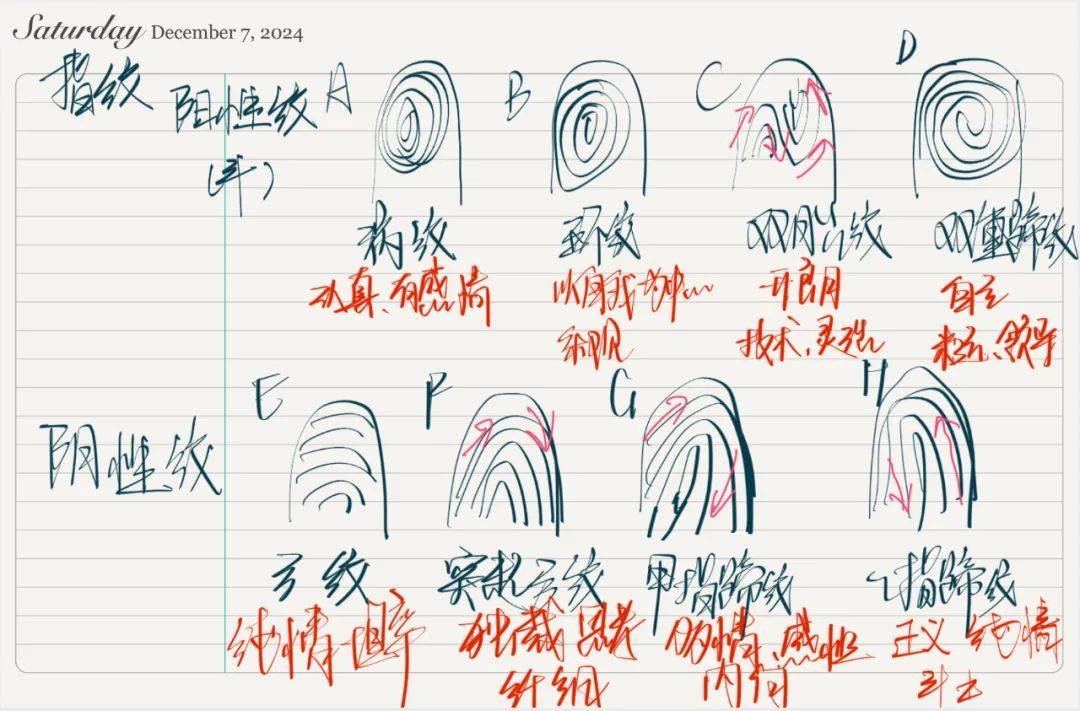 Saturday December 7, 2024
指纹
阳性纹
(斗)
A
B
C
D
涡纹
环纹
双胎纹
双重蹄纹
认真、有感情
以自我为中心
乐观
开朗
技术、灵强
自立
粗心、领导
阴性纹
E
F
G
H
弓纹
突起弓纹
甲指蹄纹
乙指蹄纹
纯情 坦率
独裁 思考
纤细
多情、感性
内向
正义 纯情
斗士